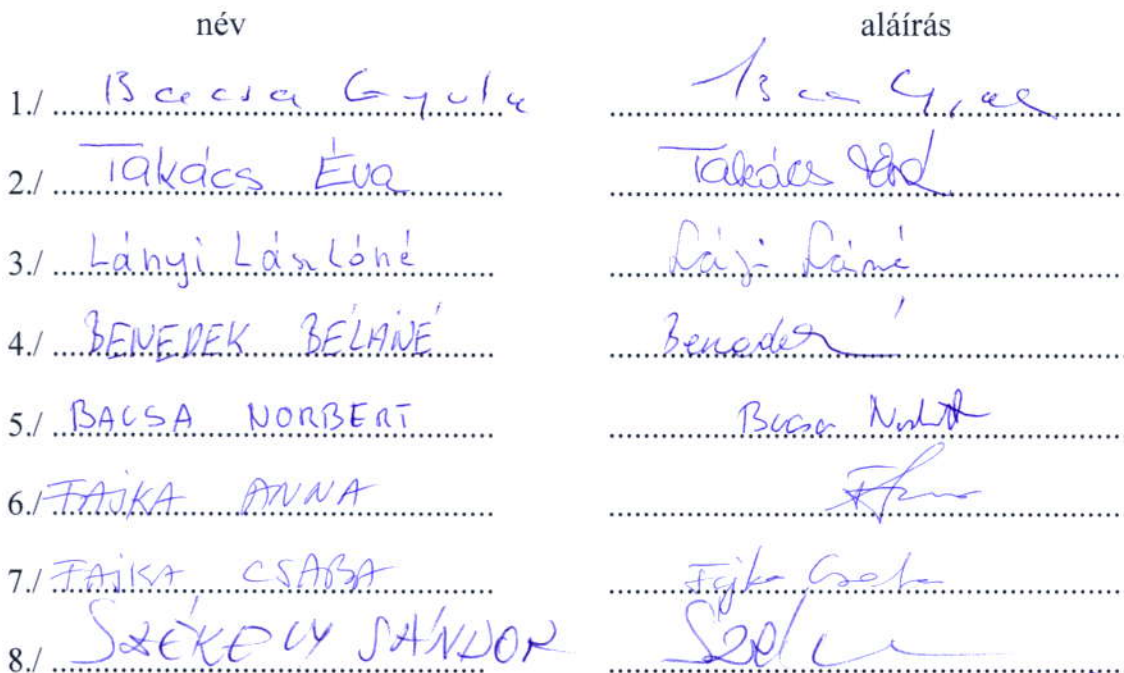 név aláírás
1./ Bacsa Gyula
2./ Takács Éva Takács Éva
3./ Lányi Lászlóné
4./ BENEDEK BÉLÁNÉ Benedek
5./ BACSA NORBERT Bacsa Norbert
6./ FAJKA ANNA
7./ FAJKA CSABA Fajka Csaba
8./ SZÉKELY SÁNDOR